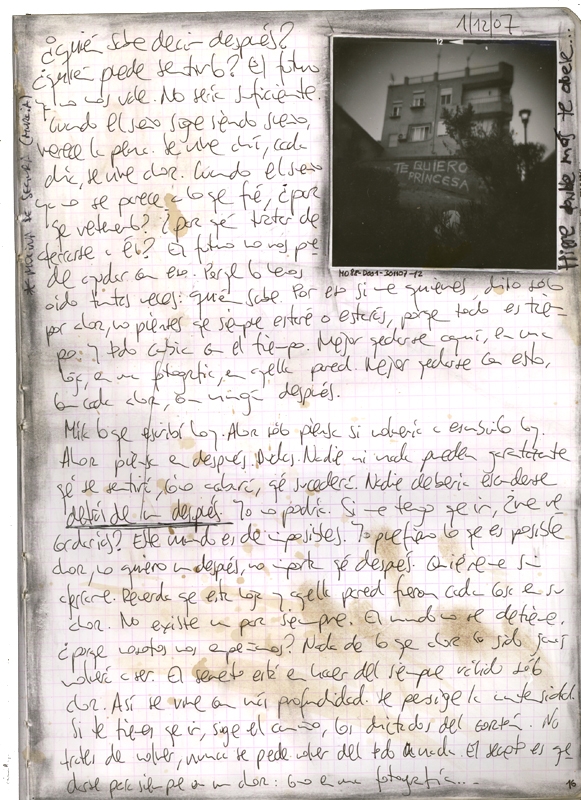 1/12/07
¿quién sabe decir después?
¿quién puede sentirlo? El futuro
no nos vale. No sería suficiente.
Cuando el sueño sigue siendo sueño,
merece la pena. Se vive ahí, cada
día, se vive ahora. Cuando el sueño
ya no se parece a lo que fué, ¿por
qué retenerlo? ¿por qué tratar de
aferrarse a él? El futuro no nos pue-
de ayudar con eso. Porque lo hemos
oído tantas veces: quién sabe. Por eso si me quieres, dilo sólo
por ahora, no pienses que siempre estaré o estarás, porque todo es tiem-
po. Y todo cambia con el tiempo. Mejor quedarse aquí, en una
hoja, en una fotografía, en aquella pared. Mejor quedarse con esto,
con cada ahora, con ningún después.
TE QUIERO
PRINCESA
Mira lo que escribí hoy. Ahora sólo piensa si volvería a escribirlo hoy.
Ahora piensa en después. Dudas. Nadie ni nada pueden garantizarte
qué se sentirá, cómo acabará, qué sucederá. Nadie debería esconderse
detrás de un después. Yo no podría. Si me tengo que ir, ¿me re-
cordarías? Este mundo es de imposibles. Yo prefiero lo que es posible
ahora, no quiero un después, no importa qué después. Quiéreme sin
aferrarme. Recuerda que esta hoja y aquella pared fueron cada cosa en su
ahora. No existe un por siempre. El mundo no se detiene,
¿porque nosotros nos empeñamos? Nada de lo que ahora ha sido jamás
volverá a ser. El secreto está en hacer del siempre válido sólo
ahora. Así se vive con más profundidad. Se persigue la intensidad.
Si te tienes que ir, sigue el camino, los dictados del corazón. No
trates de volver, nunca se puede volver del todo a nada. El secreto es que-
darse para siempre en un ahora: como en una fotografía...